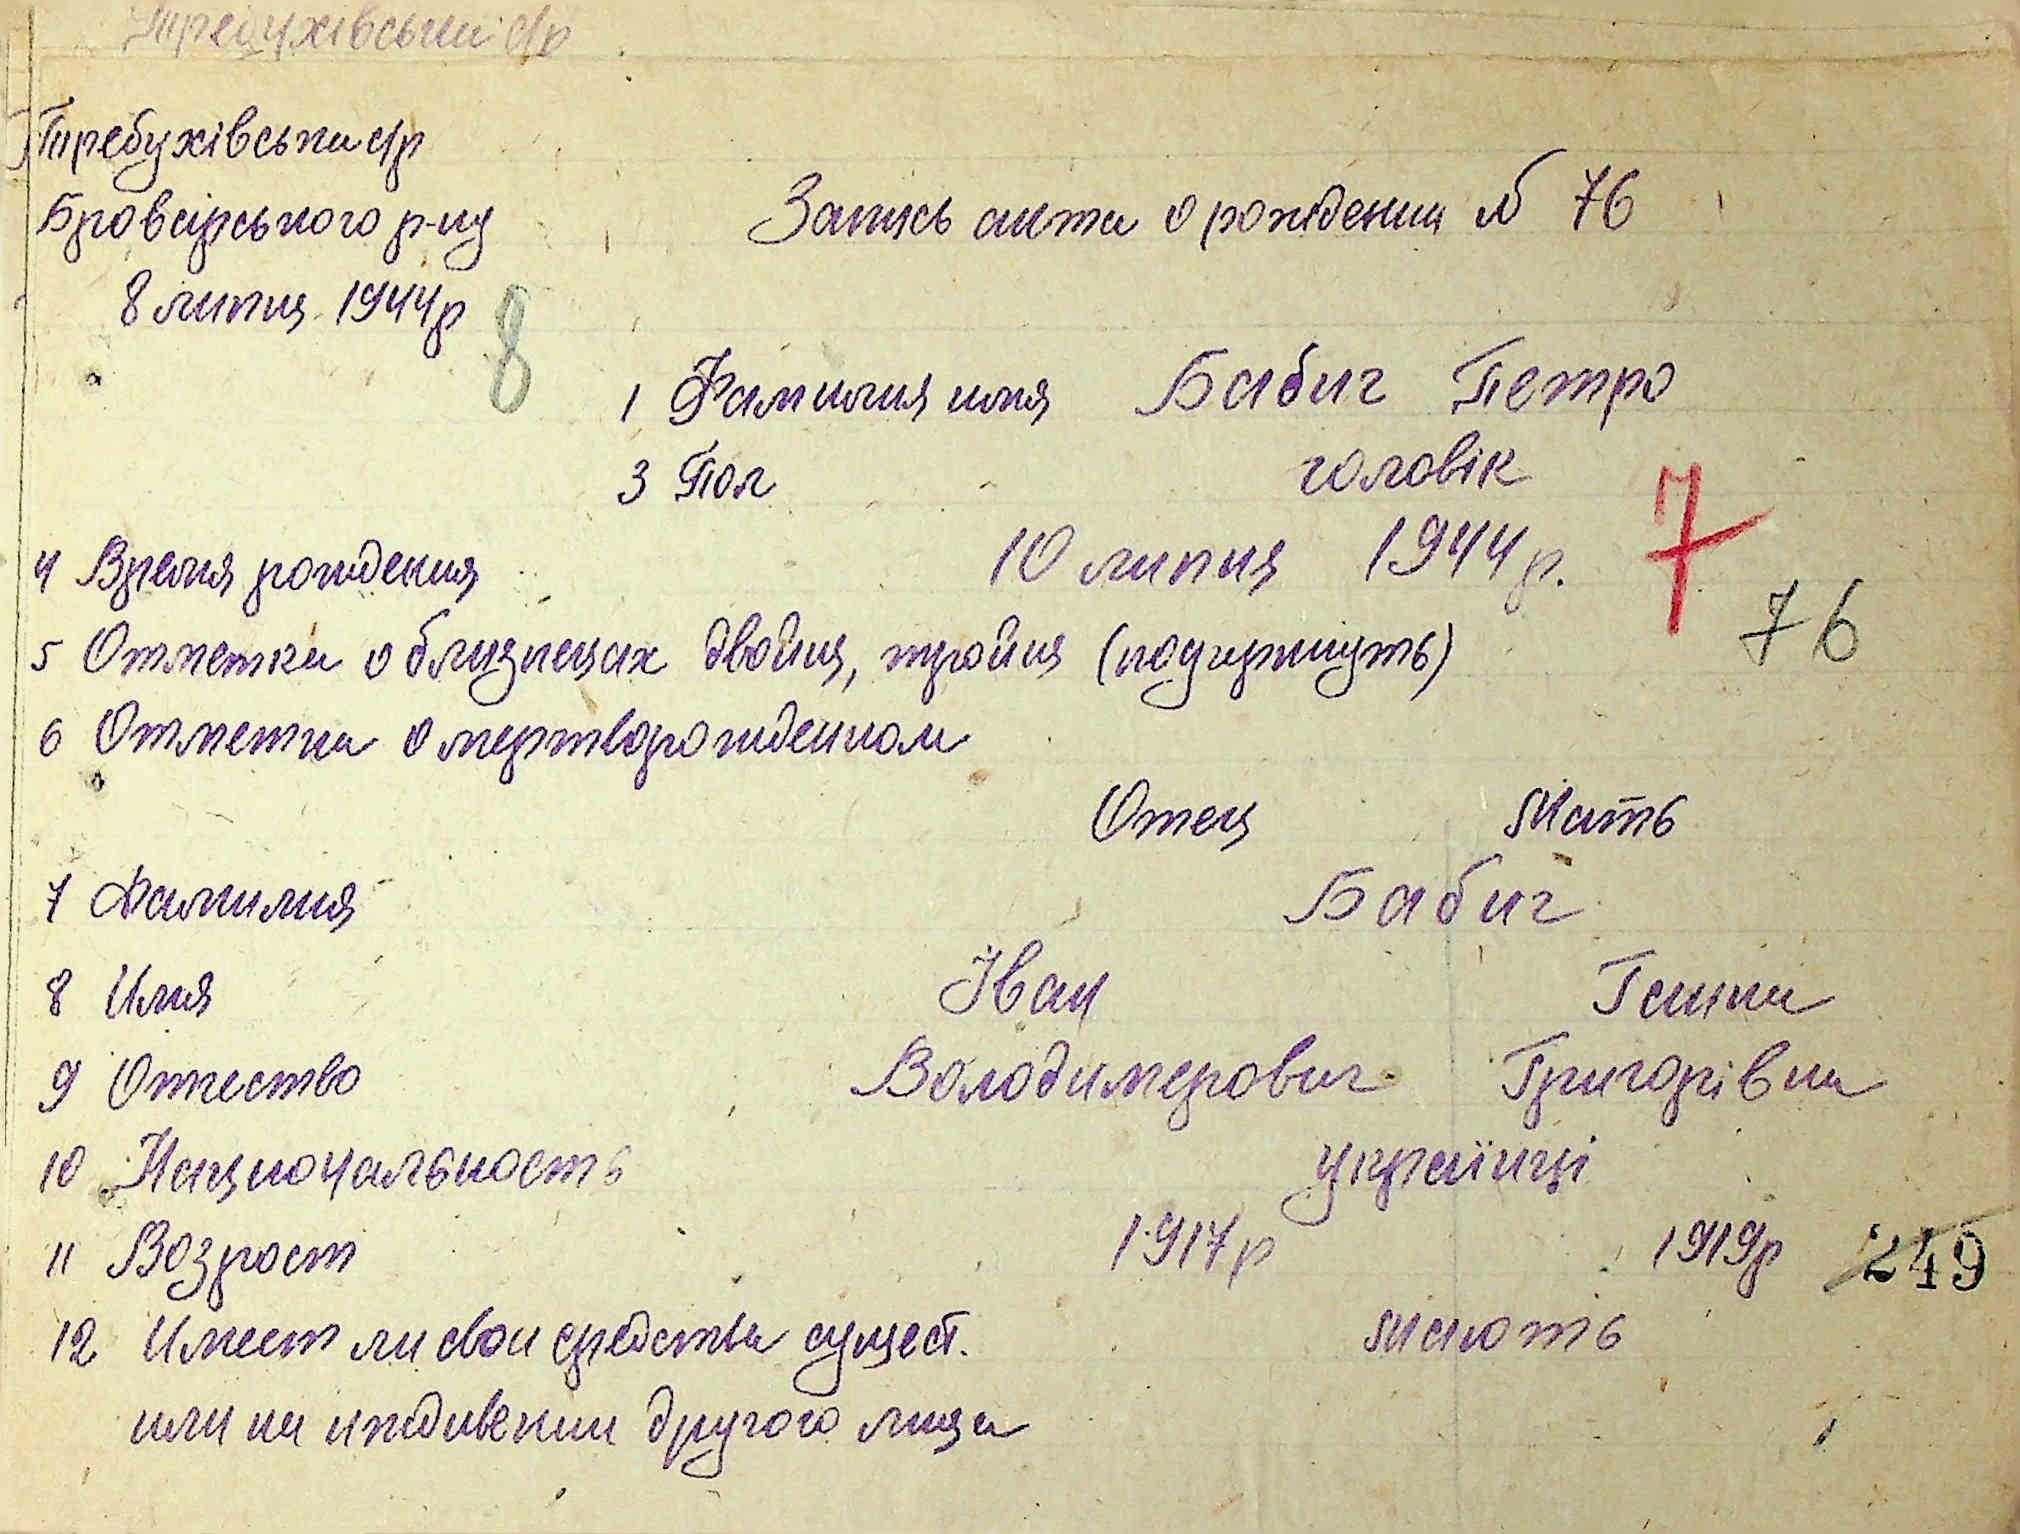 Требухівська с/р
Требухівська с/р
Броварського р-ну
8 липня 1944р
8
Запись акта о рождении № 76
1 Фамилия имя Бабич Петро
3 Пол чоловік
7
4 Время рождения 10 липня 1944 р.
76
5 Отметка о близнецах двойня, тройня (подчеркнуть)
6 Отметка о мертворожденном
Отец Мать
7 Фамилия Бабич
8 Имя Іван Ганна
9 Отчество Володимерович Григорівна
10 Национальность українці
11 Возраст 1917р 1919р
249
12 Имеет ли свои средства сущест. Мають
или на иждивении другого лица